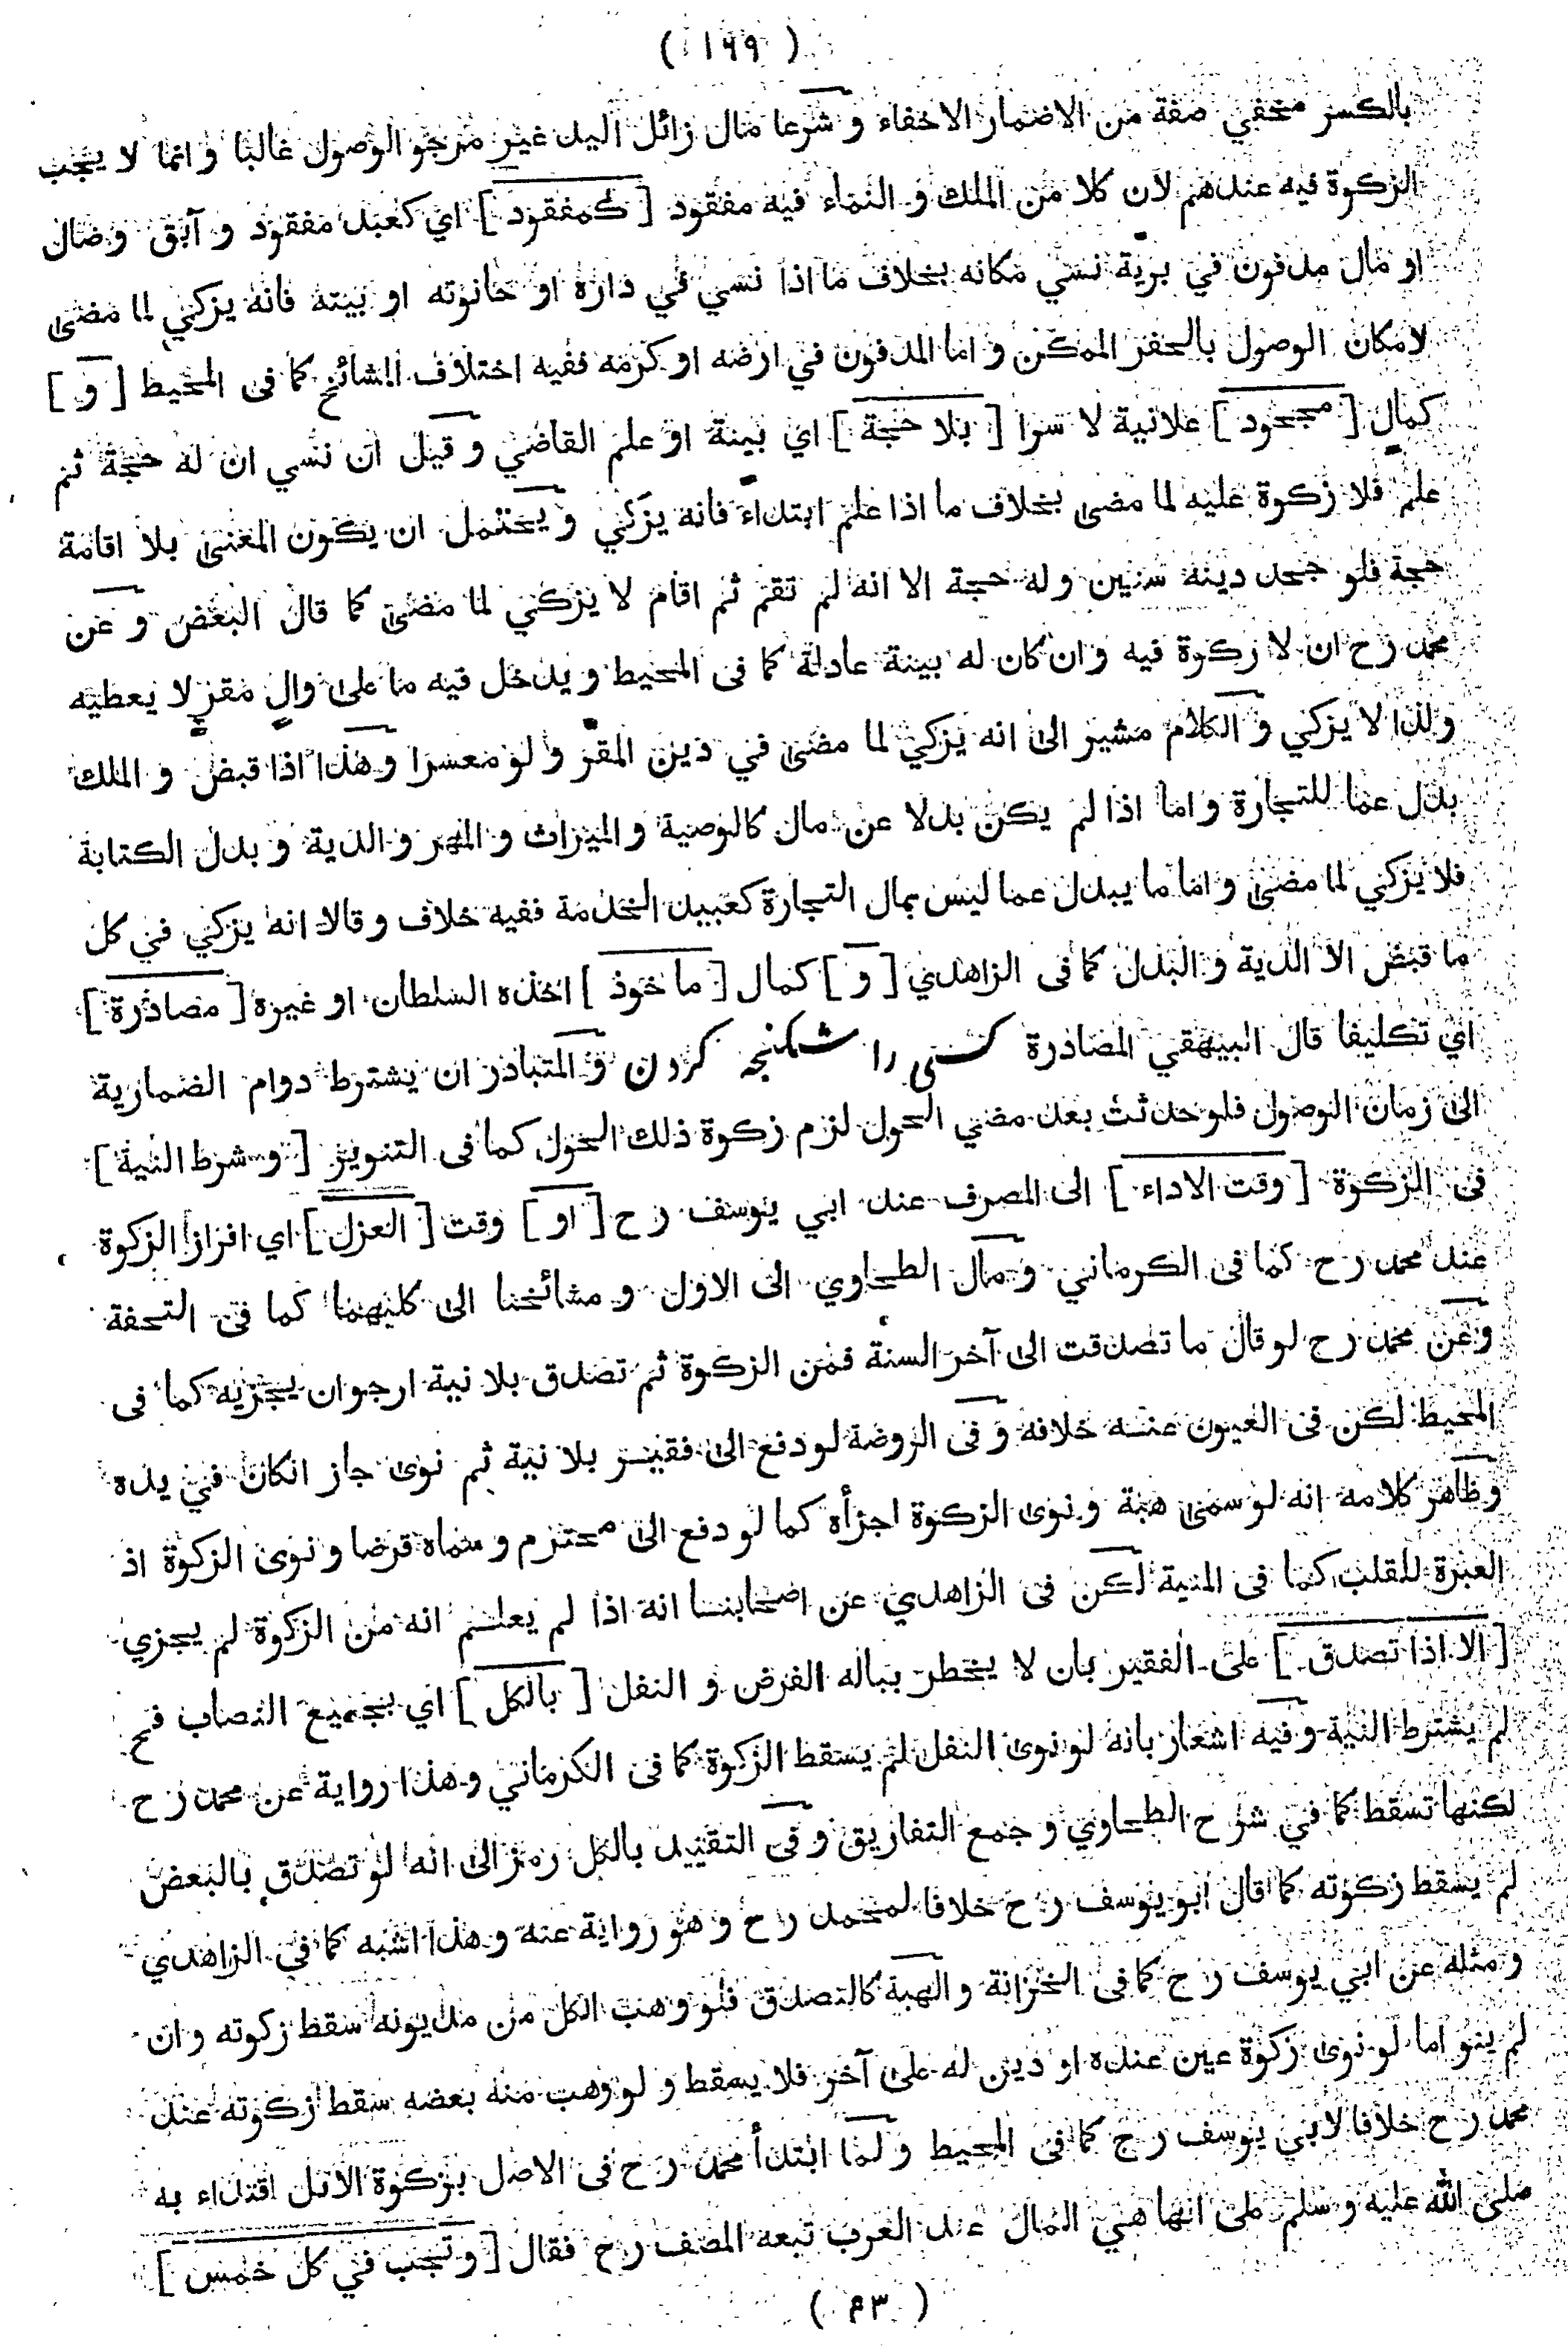 ( ١٦٩ )
بالكسر مخفي صفة من الاضمار الاخفاء و شرعا مال زائل اليد غير مرجو الوصول غالبا و انما لا يجب
الزكوة فيه عندهم لان كلا من الملك و النماء فيه مفقود [ كمفقود ] اي كعبد مفقود و آبق و ضال
او مال مدفون في برية نسي مكانه بخلاف ما اذا نسي في داره او حانوته او بيته فانه يزكي لما مضى
لامكان الوصول بالحفر الممكن و اما المدفون في ارضه او كرمه ففيه اختلاف المشائخ كما فى المحيط [ و ]
كمال [ مجحود ] علانية لا سرا [ بلا حجة ] اي بينة او علم القاضي و قيل ان نسي ان له حجة ثم
علم فلا زكوة عليه لما مضى بخلاف ما اذا علم ابتداء فانه يزكي و يحتمل ان يكون المعنى بلا اقامة
حجة فلو جحد دينه سنين وله حجة الا انه لم تقم ثم اقام لا يزكي لما مضى كما قال البعض و عن
محمد رح ان لا زكوة فيه و ان كان له بينة عادلة كما فى المحيط و يدخل فيه ما على والٍ مقرٍ لا يعطيه
ولذا لا يزكي و الكلام مشير الى انه يزكي لما مضى في دين المقر و لو معسرا و هذا اذا قبض و الملك
بدل عما للتجارة و اما اذا لم يكن بدلا عن مال كالوصية و الميراث و المهر و الدية و بدل الكتابة
فلا يزكي لما مضى و اما ما يبدل عما ليس بمال التجارة كعبيد الخدمة ففيه خلاف و قالا انه يزكي في كل
ما قبض الا الدية و البدل كما فى الزاهدي [ و ] كمال [ ماخوذ ] اخذه السلطان او غيره [ مصادرة ]
اي تكليفا قال البيهقي المصادرة كسى را شكنجه كردن و المتبادر ان يشترط دوام الضمارية
الى زمان الوصول فلو حدثت بعد مضي الحول لزم زكوة ذلك الحول كما فى التنوير [ و شرط النية ]
فى الزكوة [ وقت الاداء ] الى المصرف عند ابي يوسف رح [ او ] وقت [ العزل ] اي افراز الزكوة
عند محمد رح كما فى الكرماني و مال الطحاوي الى الاول و مشائخنا الى كليهما كما فى التحفة
و عن محمد رح لو قال ما تصدقت الى آخر السنة فمن الزكوة ثم تصدق بلا نية ارجو ان يجزيه كما فى
المحيط لكن فى العيون عنه خلافه و فى الروضة لو دفع الى فقير بلا نية ثم نوى جاز انكان في يده
و ظاهر كلامه انه لو سمى هبة و نوى الزكوة اجزأه كما لو دفع الى محترم و سماه قرضا و نوى الزكوة اذ
العبرة للقلب كما فى المنية لكن فى الزاهدي عن اصحابنا انه اذا لم يعلم انه من الزكوة لم يجزي
[ الا اذا تصدق ] على الفقير بان لا يخطر بباله الفرض و النفل [ بالكل ] اي بجميع النصاب فح
لم يشترط النية و فيه اشعار بانه لو نوى النفل لم يسقط الزكوة كما فى الكرماني و هذا رواية عن محمد رح
لكنها تسقط كما في شرح الطحاوي و جمع التفاريق و فى التقييد بالكل رمز الى انه لو تصدق بالبعض
لم يسقط زكوته كما قال ابو يوسف رح خلافا لمحمد رح و هو رواية عنه و هذا اشبه كما في الزاهدي
و مثله عن ابي يوسف رح كما فى الخزانة و الهبة كالتصدق فلو وهب الكل من مديونه سقط زكوته و ان
لم ينو اما لو نوى زكوة عين عنده او دين له على آخر فلا يسقط و لو وهب منه بعضه سقط زكوته عند
محمد رح خلافا لابي يوسف رح كما فى المحيط و لما ابتدأ محمد رح فى الاصل بزكوة الابل اقتداء به
صلى الله عليه و سلم على انها هي المال عند العرب تبعه المصنف رح فقال [ و تجب في كل خمس ]
( ٤٣ )